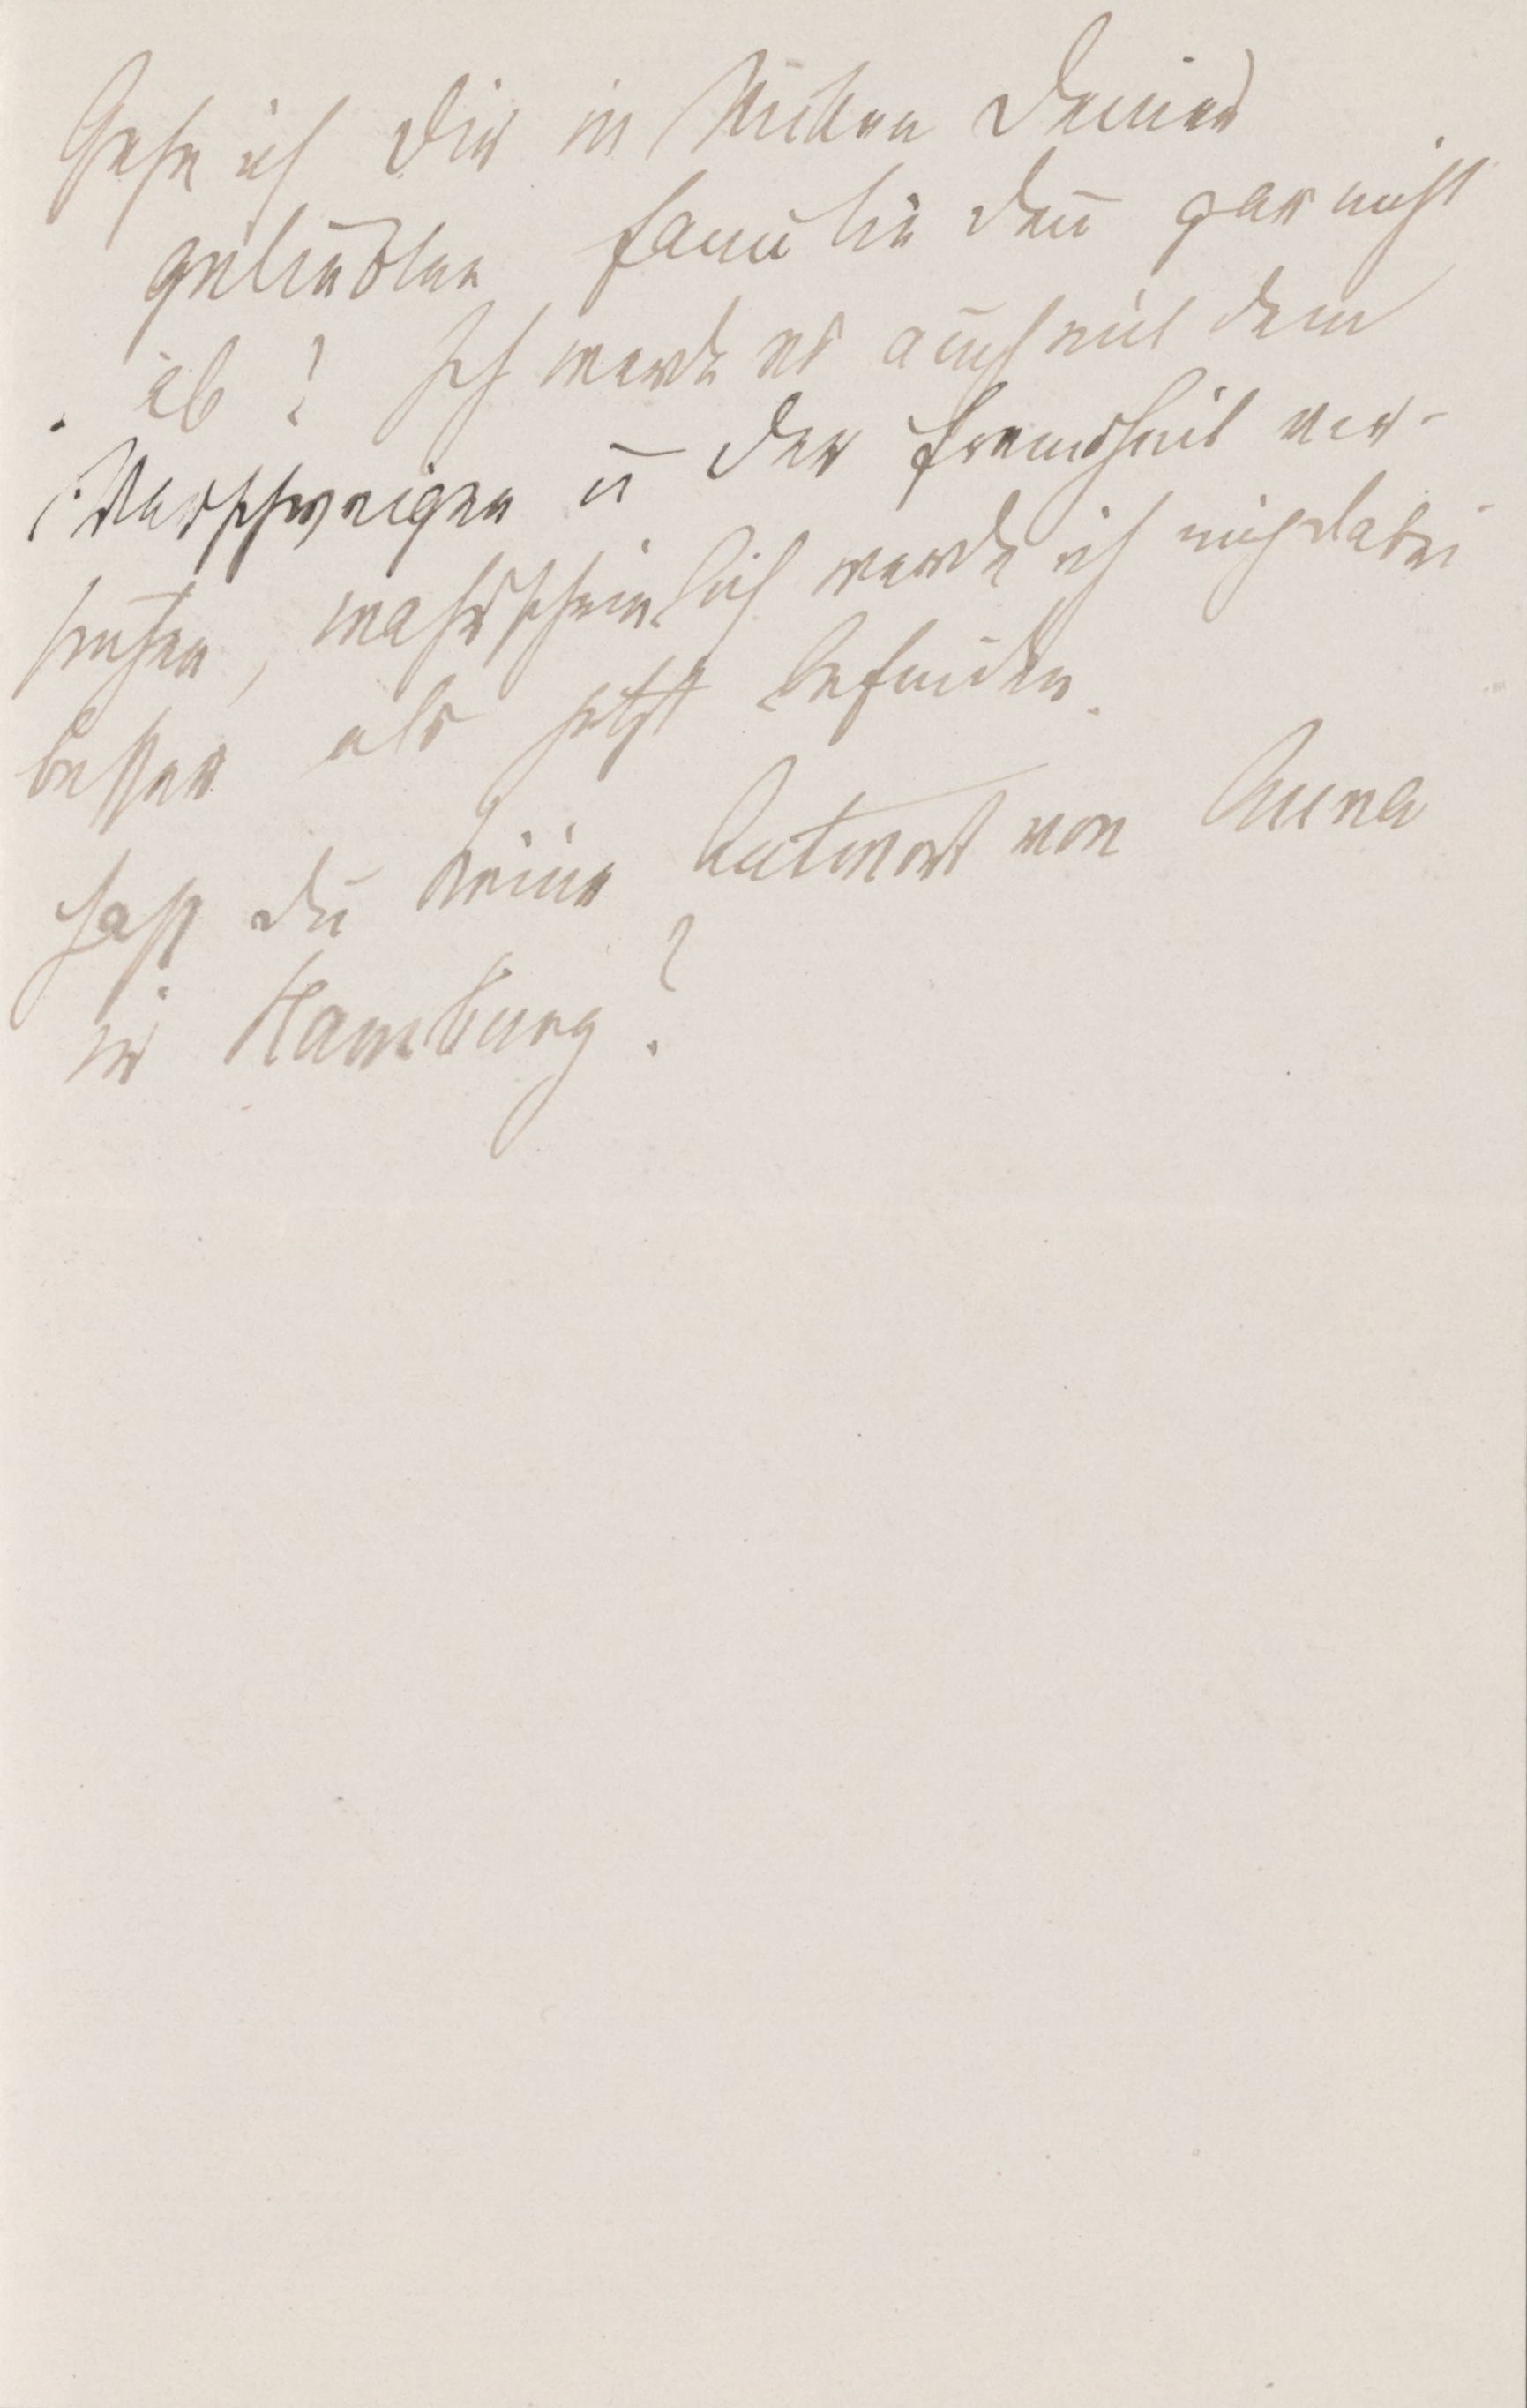 Gehe ich Dir in Mitten Deiner
geliebten Familie den̄ gar nicht
ab? Ich werde es auch mit dem
Verschweigen u der Fremdheit ver-
suchen, wahrscheinlich werde ich mich dabei
besser als jetzt befinden.
Hast du keine Antwort von Anna
in Hamburg?